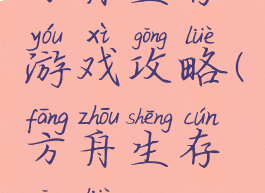 yóu xì gōng lüè
游戏攻略(
fāng zhōu shēng cún
方舟生存